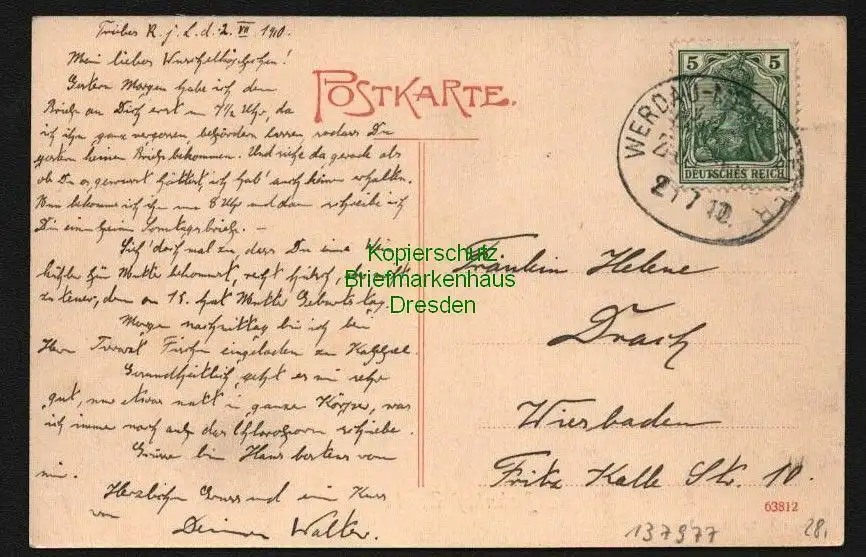 Triebes R. j. L. d. 2. VII 1910.
Mein liebes
Gestern Morgen habe ich den
Brief an Dich erst um 7½ Uhr, da
ich ihn ganz vergessen befördern lassen sodass Du
gestern keinen Brief bekommen. Und siehe da gerade als
ob Du es gewusst hättest, ich hab' auch keinen erhalten.
Nun bekomme ich ihn um 8 Uhr und dann schreibe ich
Dir einen Sonntagsbrief. –
Sieh' doch mal zu, dass Du eine
für Mutter bekommst, recht hübsch, nicht
zu teuer, denn am 15. hat Mutter Geburtstag.
Morgen nachmittag bin ich bei
Herrn eingeladen zu Kaffee.
Gesundheitlich geht es mir sehr
gut, nur etwas matt im ganzen Körper, was
ich immer noch auf das Chloroform schiebe.
Grüsse bei Haus bestens von
mir.
Herzlichen Gruss und ein Kuss
von
Deinem Walter.
POSTKARTE.
5 5
DEUTSCHES REICH
WERDAU-
2 1 7 10.
Fräulein Helene
Drach
Wiesbaden
Fritz Kalle Str. 10.
63812
137977
28,
Kopierschutz
Briefmarkenhaus
Dresden